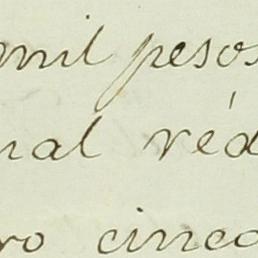 mil pesos
nal réd
ro cinco